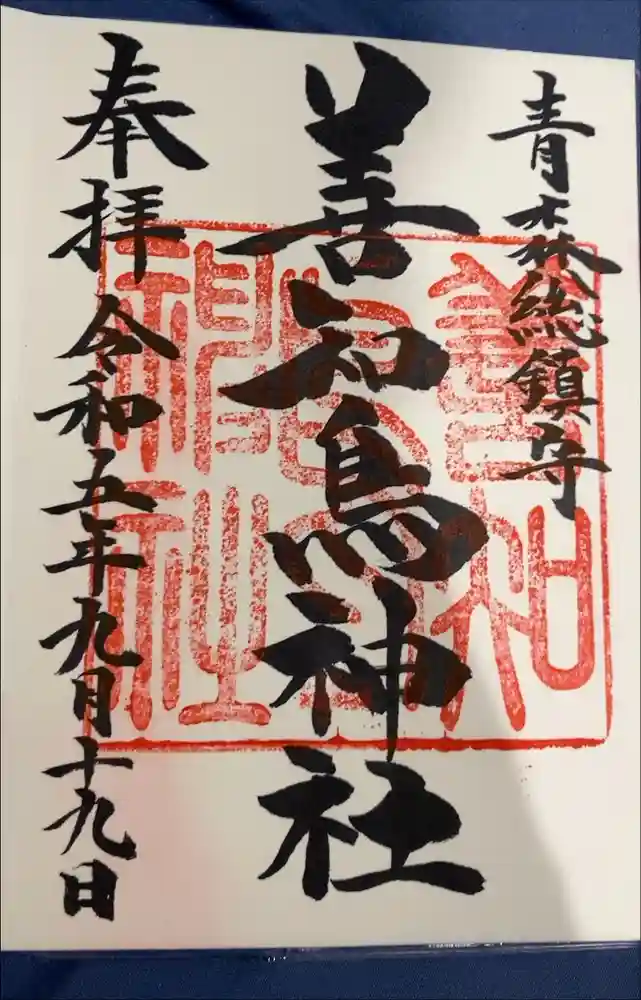 青森総鎮守
善知鳥神社
奉拝
令和五年九月十九日